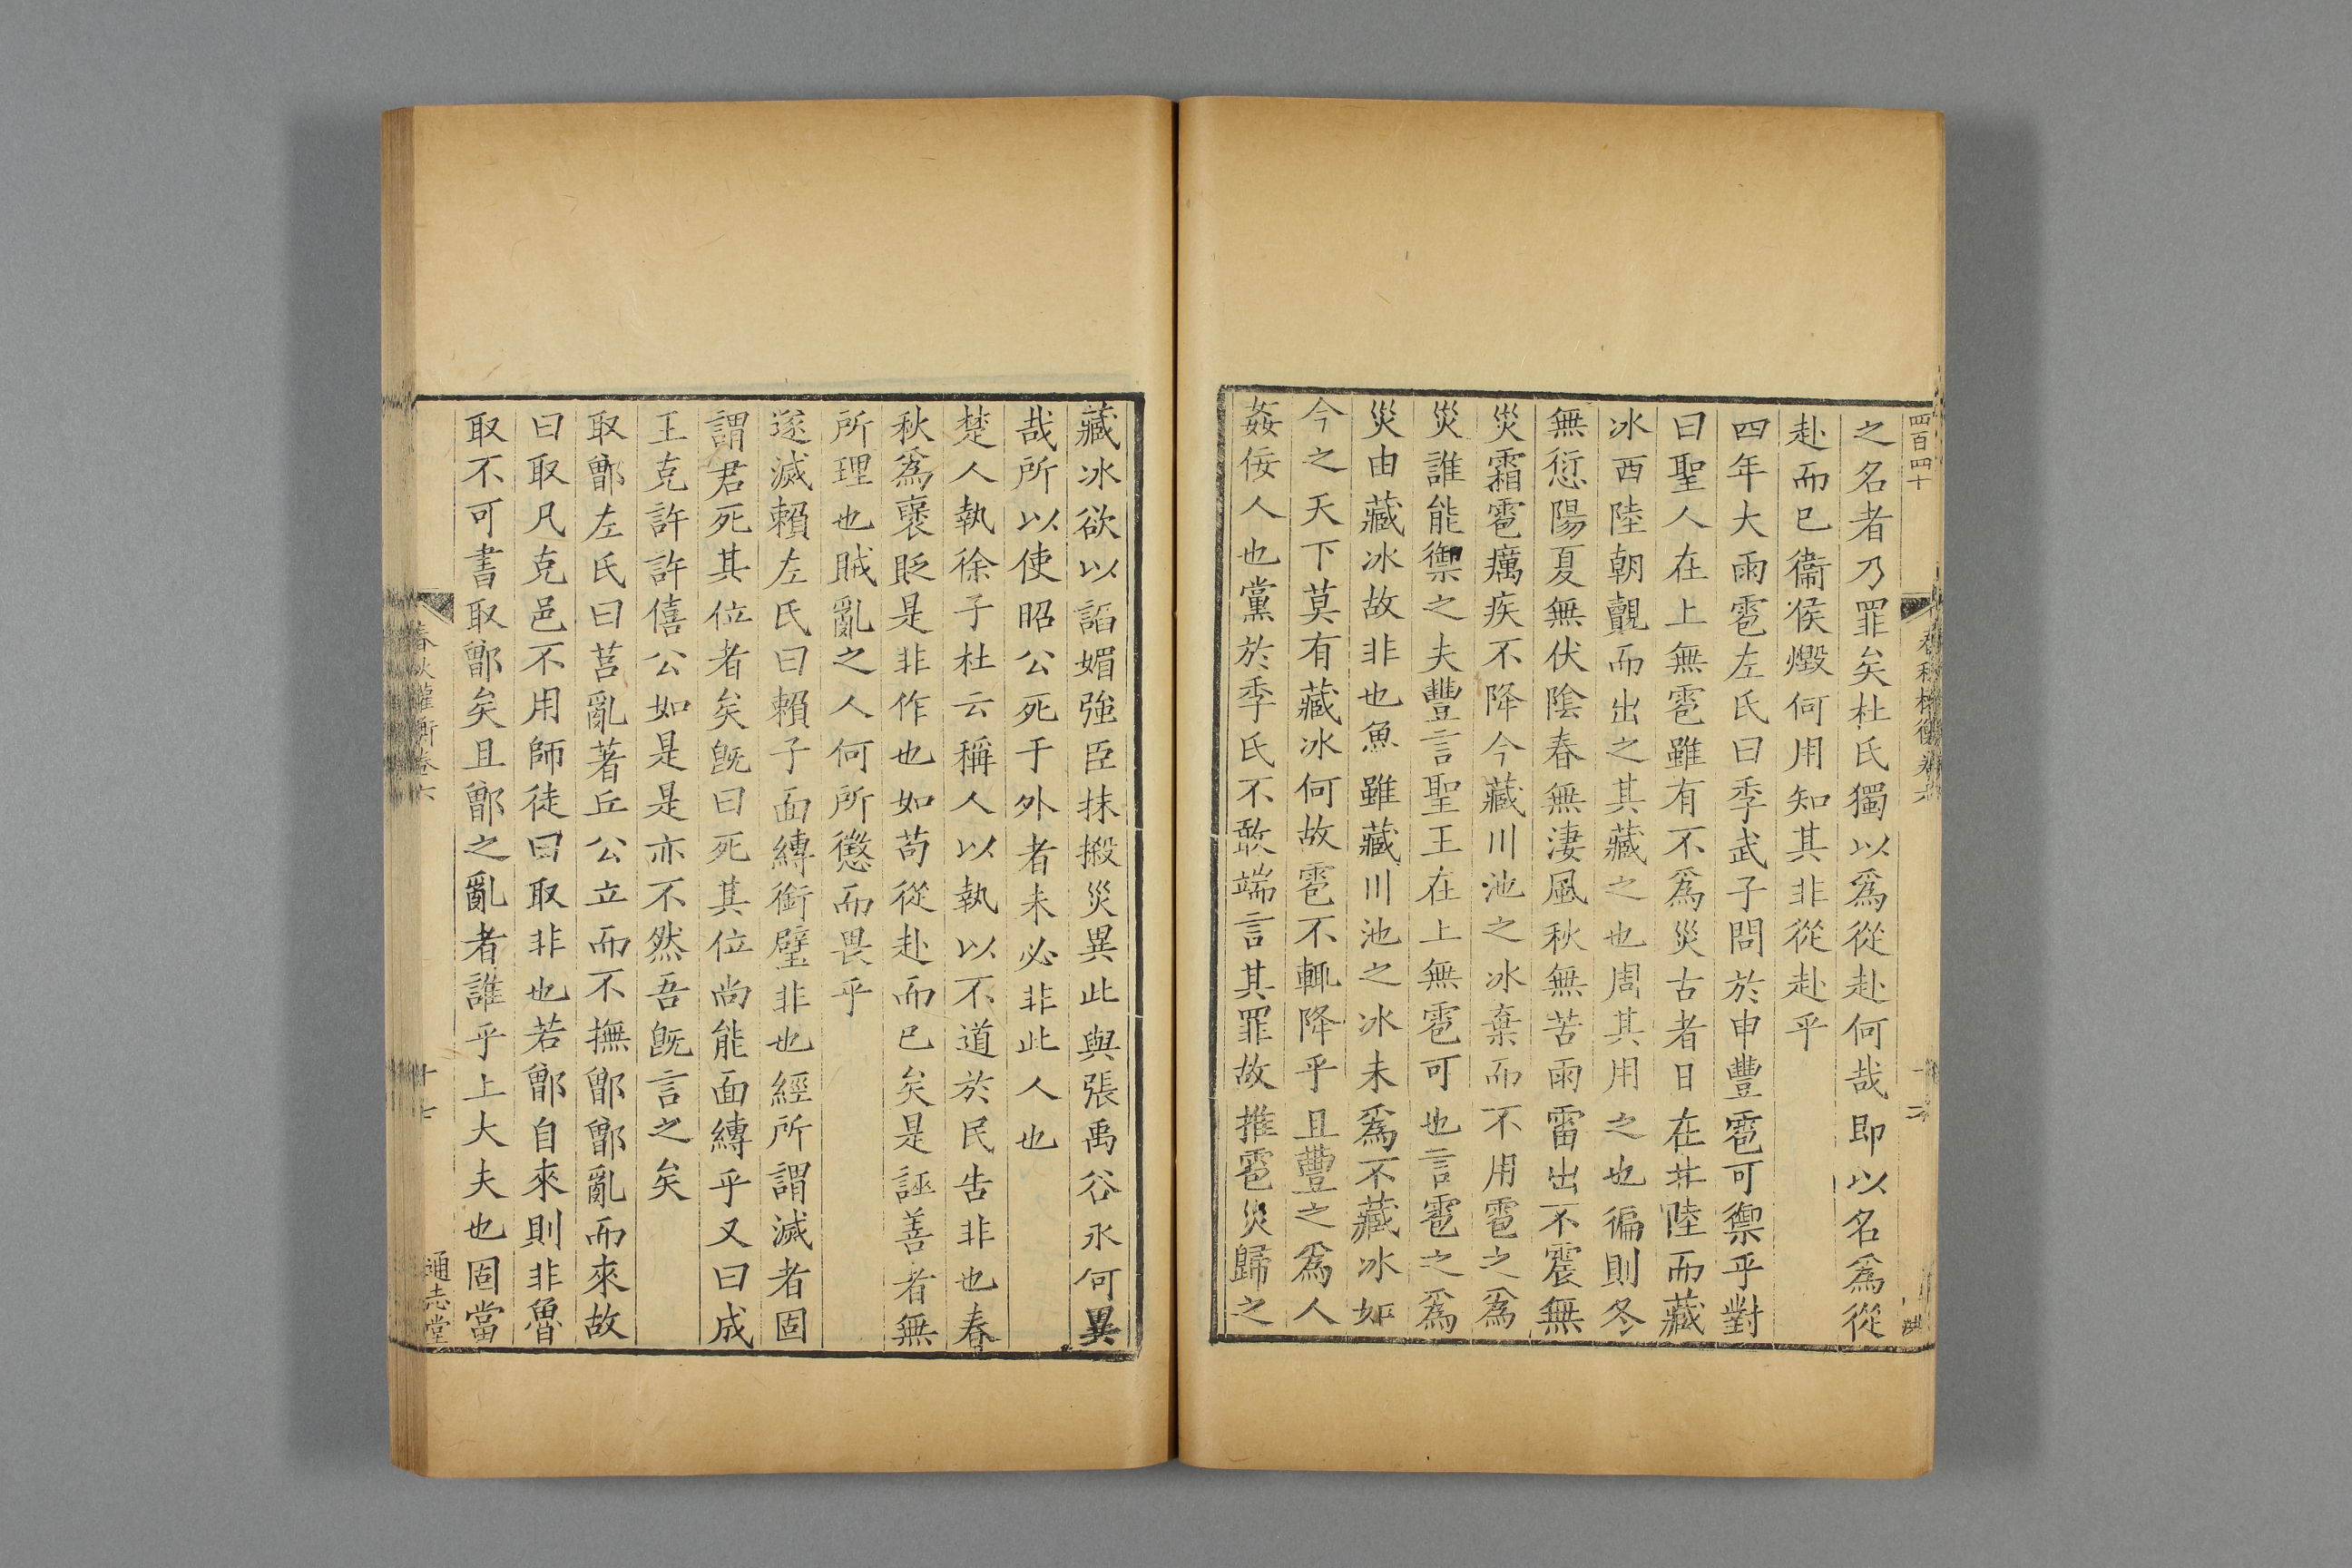 四百四十
之名者乃罪矣杜氏獨以爲從赴何哉即以名爲從
赴而已衞侯燬何用知其非從赴乎
四年大雨雹左氏曰季武子問於申豐雹可禦乎對
曰聖人在上無雹雖有不爲災古者日在北陸而藏
冰西陸朝覿而出之其藏之也周其用之也徧則冬
無愆陽夏無伏陰春無淒風秋無苦雨雷出不震無
災霜雹癘疾不降今藏川池之冰棄而不用雹之爲
災誰能禦之夫豐言聖王在上無雹可也言雹之爲
災由藏冰故非也魚雖藏川池之冰未爲不藏冰如
今之天下莫有藏冰何故雹不輒降乎且豐之爲人
姦佞人也黨於季氏不敢端言其罪故推雹災歸之
藏冰欲以諂媚強臣抹搬災異此與張禹谷永何異
哉所以使昭公死于外者未必非此人也
楚人執徐子杜云稱人以執以不道於民告非也春
秋爲褒貶是非作也如苟從赴而已矣是誣善者無
所理也賊亂之人何所懲而畏乎
遂滅賴左氏曰賴子面縛銜璧非也經所謂滅者固
謂君死其位者矣旣曰死其位尚能面縛乎又曰成
王克許許僖公如是是亦不然吾旣言之矣
取鄫左氏曰莒亂著丘公立而不撫鄫鄫亂而來故
曰取凡克邑不用師徒曰取非也若鄫自來則非魯
取不可書取鄫矣且鄫之亂者誰乎上大夫也固當
春秋權衡卷六
十七
通志堂